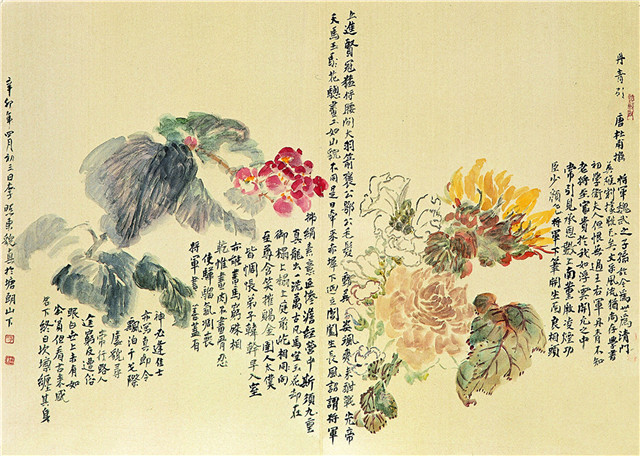 丹青引
唐杜甫撰
將軍魏武之子孫於今為庶為清門
英雄割據雖已矣文采風流猶尚存學書
初學衛夫人但恨無過王右軍丹青不知
老將至富貴於我如浮雲開元之中
常引見承恩數上南薰殿凌煙功
臣少顏色將軍下筆開生面良相頭
上進賢冠猛將腰間大羽箭褒公鄂公毛髮動英姿颯爽來酣戰先帝
天馬玉花驄畫工如山貌不同是日牽來赤墀下迥立閶闔生長風詔謂將軍
拂絹素意匠慘澹經營中斯須九重
真龍出一洗萬古凡馬空玉花卻在
御榻上榻上庭前屹相向
至尊含笑催賜金圉人太僕
皆惆悵弟子韓幹早入室
亦能畫馬窮殊相
幹惟畫肉不畫骨忍
使驊騮氣凋喪
將軍畫善蓋有
神必逢佳士
亦寫真即今
飄泊干戈際
屢貌尋
常行路人
途窮反遭俗
眼白世上未有如
公貧但看古來盛
名下終日坎壈纏其身
辛卯年四月初三日李東於塘朗山下